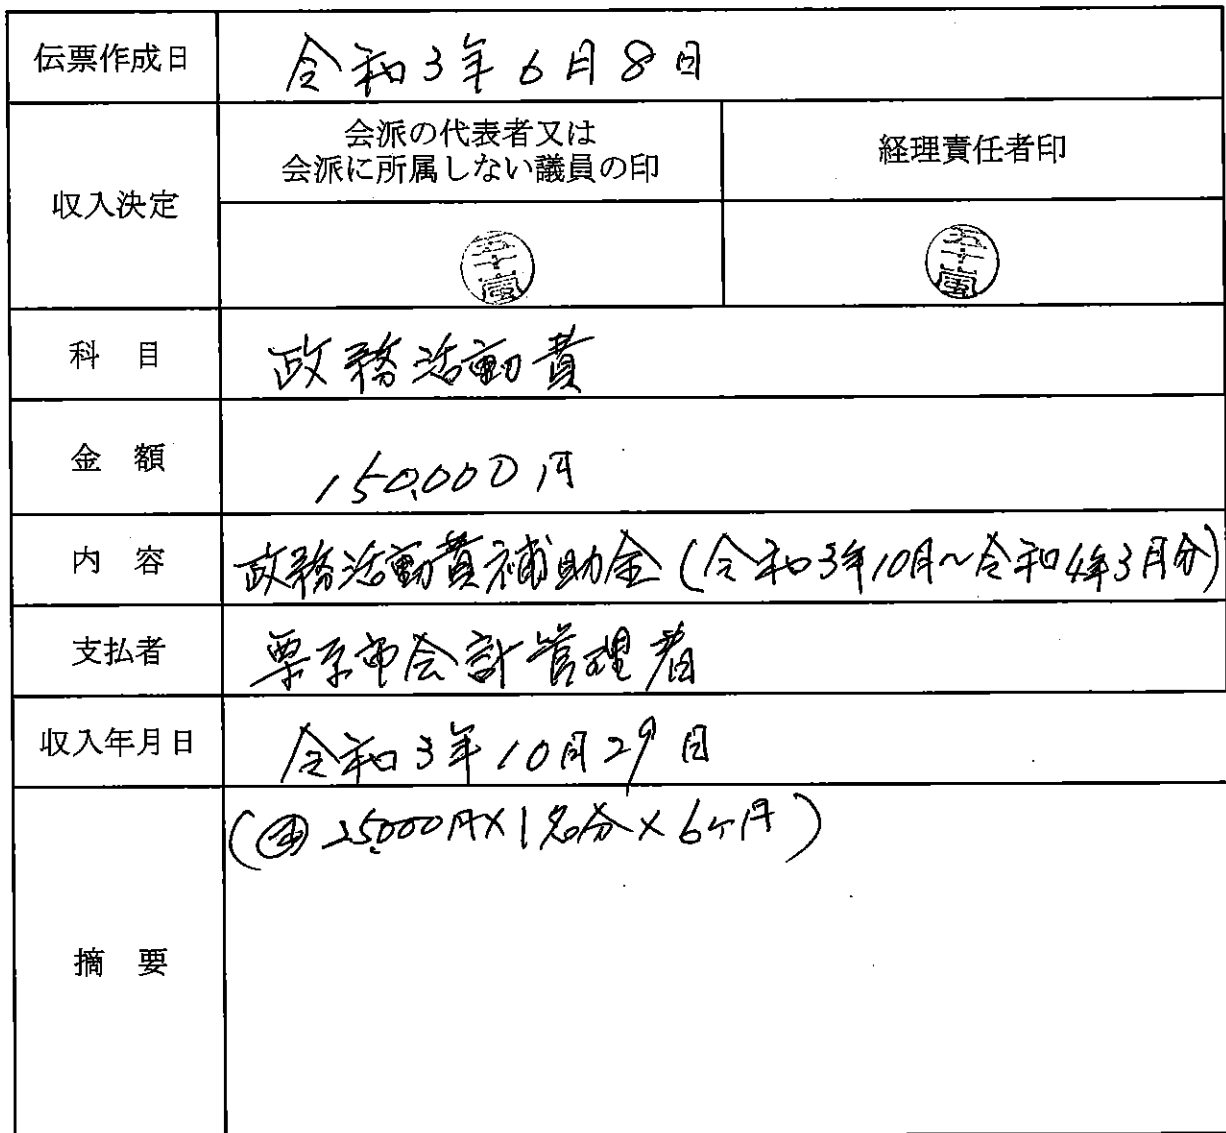 伝票作成日 令和3年6月8日
収入決定
会派の代表者又は
会派に所属しない議員の印
経理責任者印
五十嵐
五十嵐
科 目 政務活動費
金 額 150,000円
内 容 政務活動費補助金(令和3年10月～令和4年3月分)
支払者 栗原市会計管理者
収入年月日 令和3年10月29日
摘 要
(25,000円×1名分×6ヶ月)